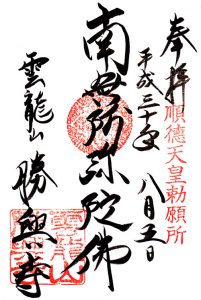 奉拝
順德天皇勅願所
平成三十年 八月五日
南無阿弥陀佛
雲龍山 勝興寺